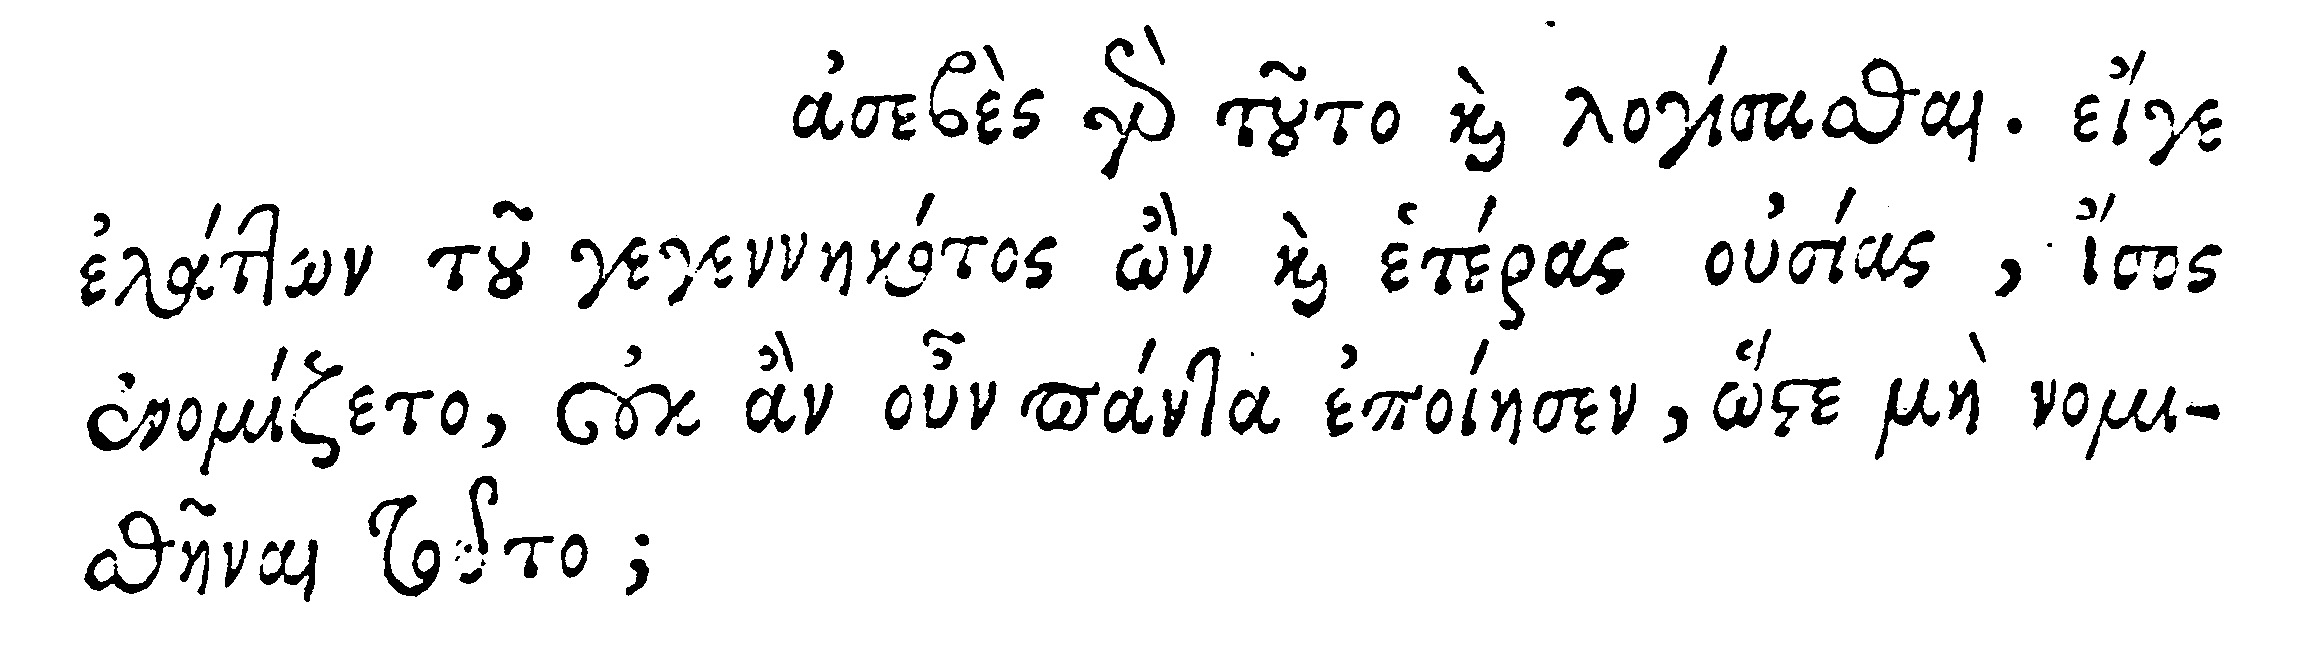 ἀσεβὲς γὰρ τοῦτο καὶ λογίσασθαι. εἴγε
ἐλάττων τοῦ γεγεννηκότος ὢν καὶ ἑτέρας οὐσίας, ἴσος
ἐνομίζετο, οὐκ ἂν οὖν πάντα ἐποίησεν, ὥστε μὴ νομι-
σθῆναι τοῦτο;